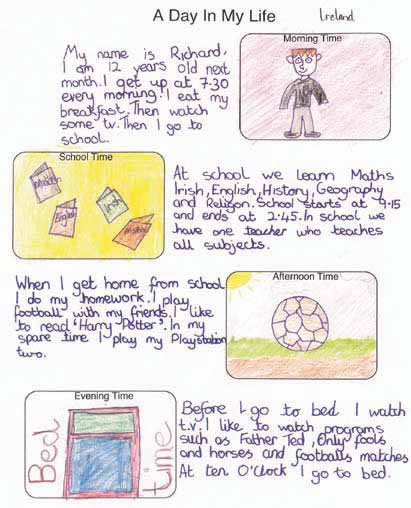 A Day In My Life
Ireland
My name is Richard,
I am 12 years old next
month. I get up at 7.30
every morning. I eat my
breakfast. Then watch
some tv. Then I go to
school.
Morning Time
School Time
English
Irish
At school we learn Maths
Irish, English, History, Geography
and Religon. School starts at 9.15
and ends at 2.45. In school we
have one teacher who teaches
all subjects.
When I get home from school
I do my homework. I play
football with my friends. I like
to read 'Harry Potter'. In my
spare time I play my Playstation
two.
Afternoon Time
Evening Time
Bed
time
Before I go to bed I watch
t.v. I like to watch programs
such as Father Ted, Only fools
and horses and footballs matches
At ten O'Clock I go to bed.